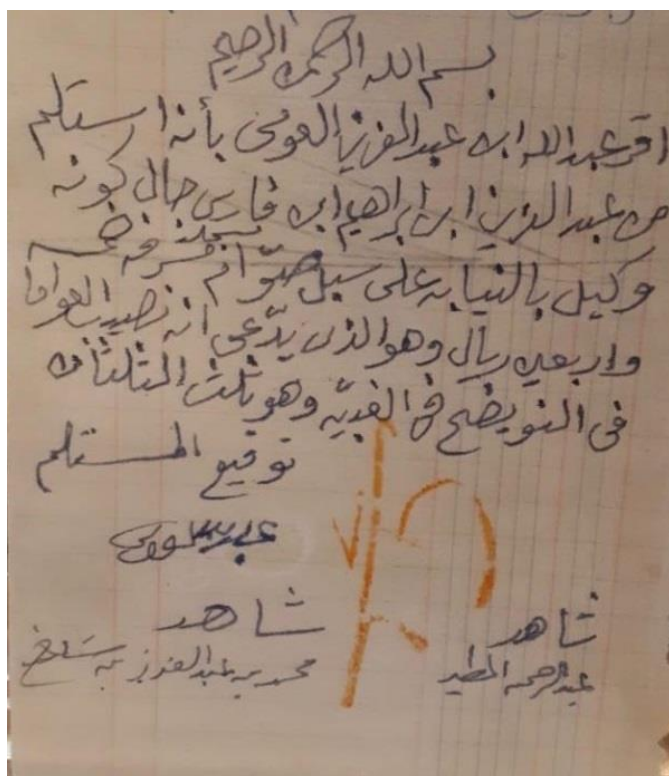 بسم الله الرحمن الرحيم
اقر عبدالله ابن عبدالعزيز العومى بأنه استلم
من عبدالدين ابن ابراهيم ابن فارس حال كونه
وكيل بالنيابه على سبل صوّام
واربعين ريال وهو الذى يدّعى انه نصيب
فى النويضح في الغبيّه وهو ثلث الثلثان
توقيع المستلم
شاهد
شاهد
محمد بن عبدالعزيز بن
عبدالرحمن المطير